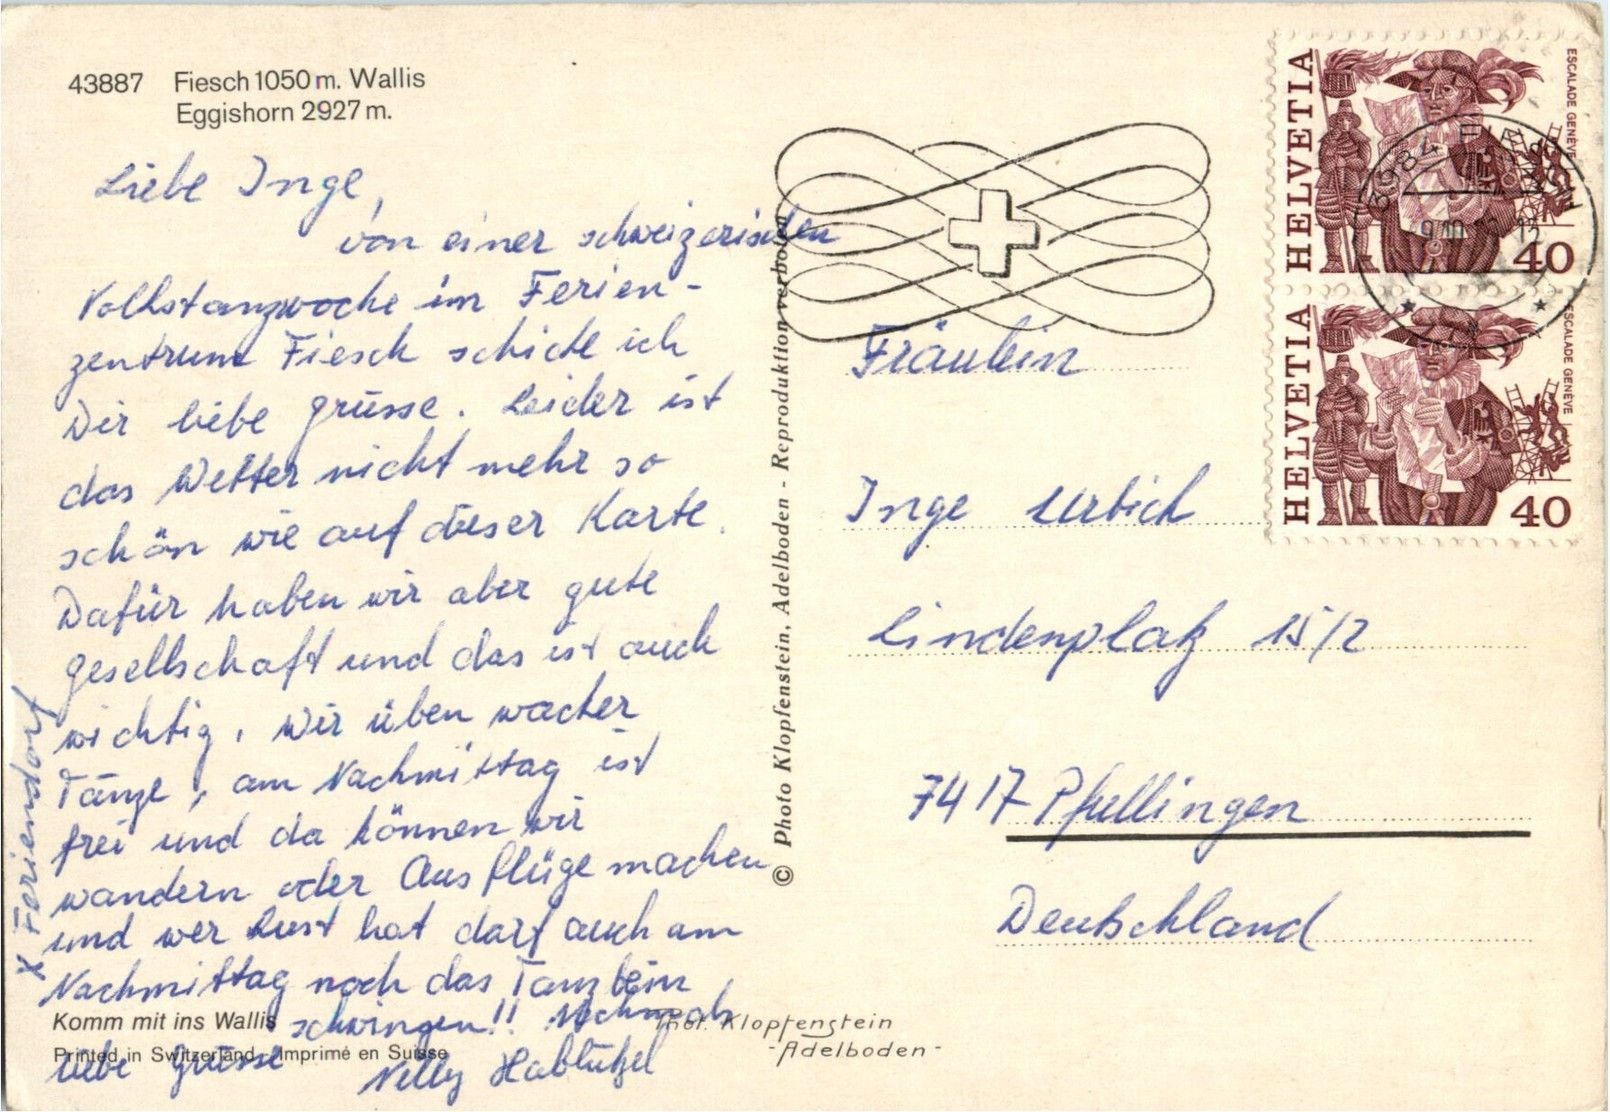 43887 Fiesch 1050 m. Wallis
Eggishorn 2927 m.
Liebe Inge,
von einer schweizerischen
Volkstanzwoche im Ferien-
zentrum Fiesch schicke ich
Dir liebe Grüsse. Leider ist
das Wetter nicht mehr so
schön wie auf dieser Karte.
Dafür haben wir aber gute
Gesellschaft und das ist auch
wichtig. Wir üben wacker
Tänze, am Nachmittag ist
frei und da können wir
wandern oder Ausflüge machen
und wer Lust hat darf auch am
Nachmittag noch das Tanzbein
schwingen!! Nochmals
liebe Grüsse Nelly Hablützel
x Feriendorf
Komm mit ins Wallis
Printed in Switzerland - Imprimé en Suisse
© Photo Klopfenstein, Adelboden - Reproduktion verboten
Phot. Klopfenstein
-Adelboden-
HELVETIA
ESCALADE GENÈVE
40
HELVETIA
ESCALADE GENÈVE
40
3984
Fräulein
Inge Urbich
Lindenplatz 15/2
7417 Pfullingen
Deutschland